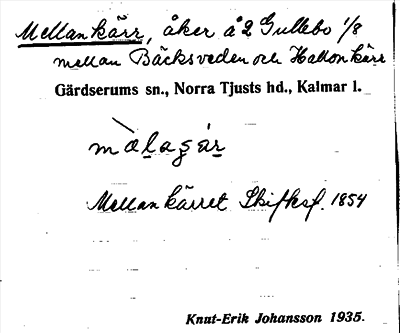 Mellankärr, åker å 2 Gullebo 1/8
mellan Bäcksveden och Hallonkärr
Gärdserums sn., Norra Tjusts hd., Kalmar l.
Mellankärret Skifksf. 1854
Knut-Erik Johansson 1935.